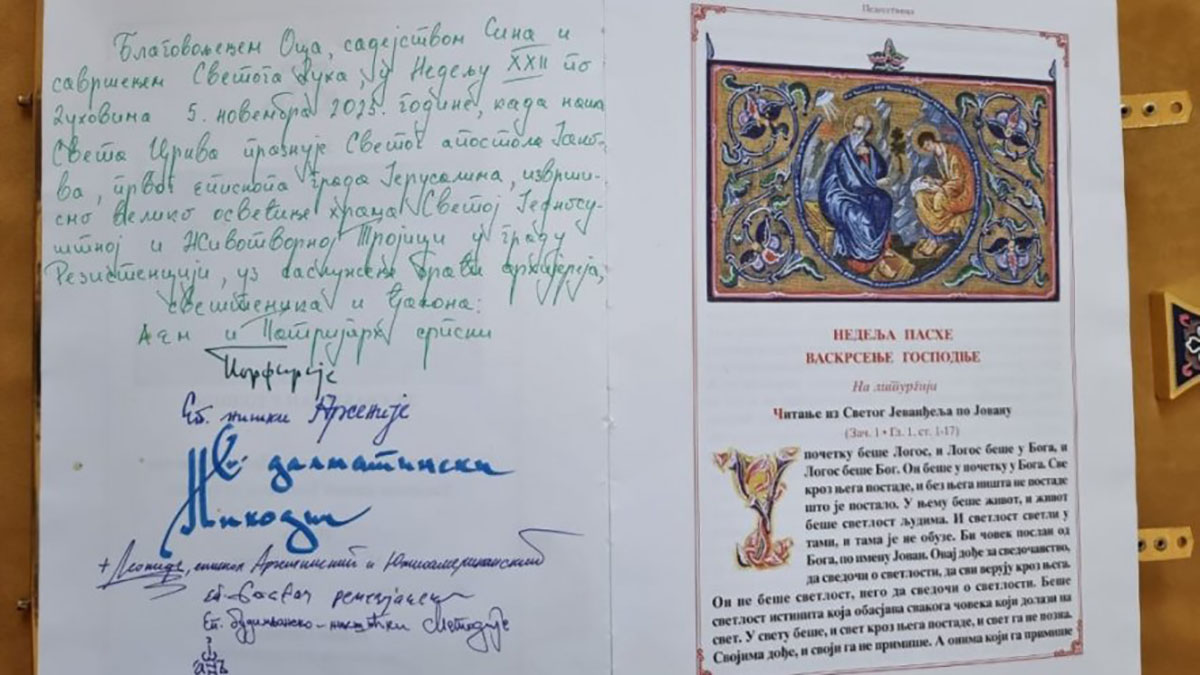 Благовољењем Оца, садејством Сина и
савршењем Светога Духа, у Недељу XXII по
Духовима 5. новембра 2023. године, када наша
Света Црква празнује Светог апостола Јако-
ва, првог епископа града Јерусалима, изврши-
смо велико освећење храма Светој Једносу-
штној и Животворној Тројици у граду
Резистенцији, уз саслужење браће архијереја,
свештеника и ђакона:
и Патријарх српски
Порфирије
Еп. нишки Арсеније
Еп. далматински
Никодим
+ Леонид, епископ Аргентинский и Южноамериканский
еп. ремезијански
Еп. будимљанско-никшићки Методије
Педесетница
НЕДЕЉА ПАСХЕ
ВАСКРСЕЊЕ ГОСПОДЊЕ
На литургији
Читање из Светог Јеванђеља по Јовану
(Зач. 1 • Гл. 1, ст. 1-17)
У почетку беше Логос, и Логос беше у Бога, и
Логос беше Бог. Он беше у почетку у Бога. Све
кроз њега постаде, и без њега ништа не постаде
што је постало. У њему беше живот, и живот
беше светлост људима. И светлост светли у
тами, и тама је не обузе. Би човек послан од
Бога, по имену Јован. Овај дође за сведочанство,
да сведочи о светлости, да сви верују кроз њега.
Он не беше светлост, него да сведочи о светлости. Беше
светлост истинита која обасјава свакога човека који долази на
свет. У свету беше, и свет кроз њега постаде, и свет га не позна.
Својима дође, и своји га не примише. А онима који га примише